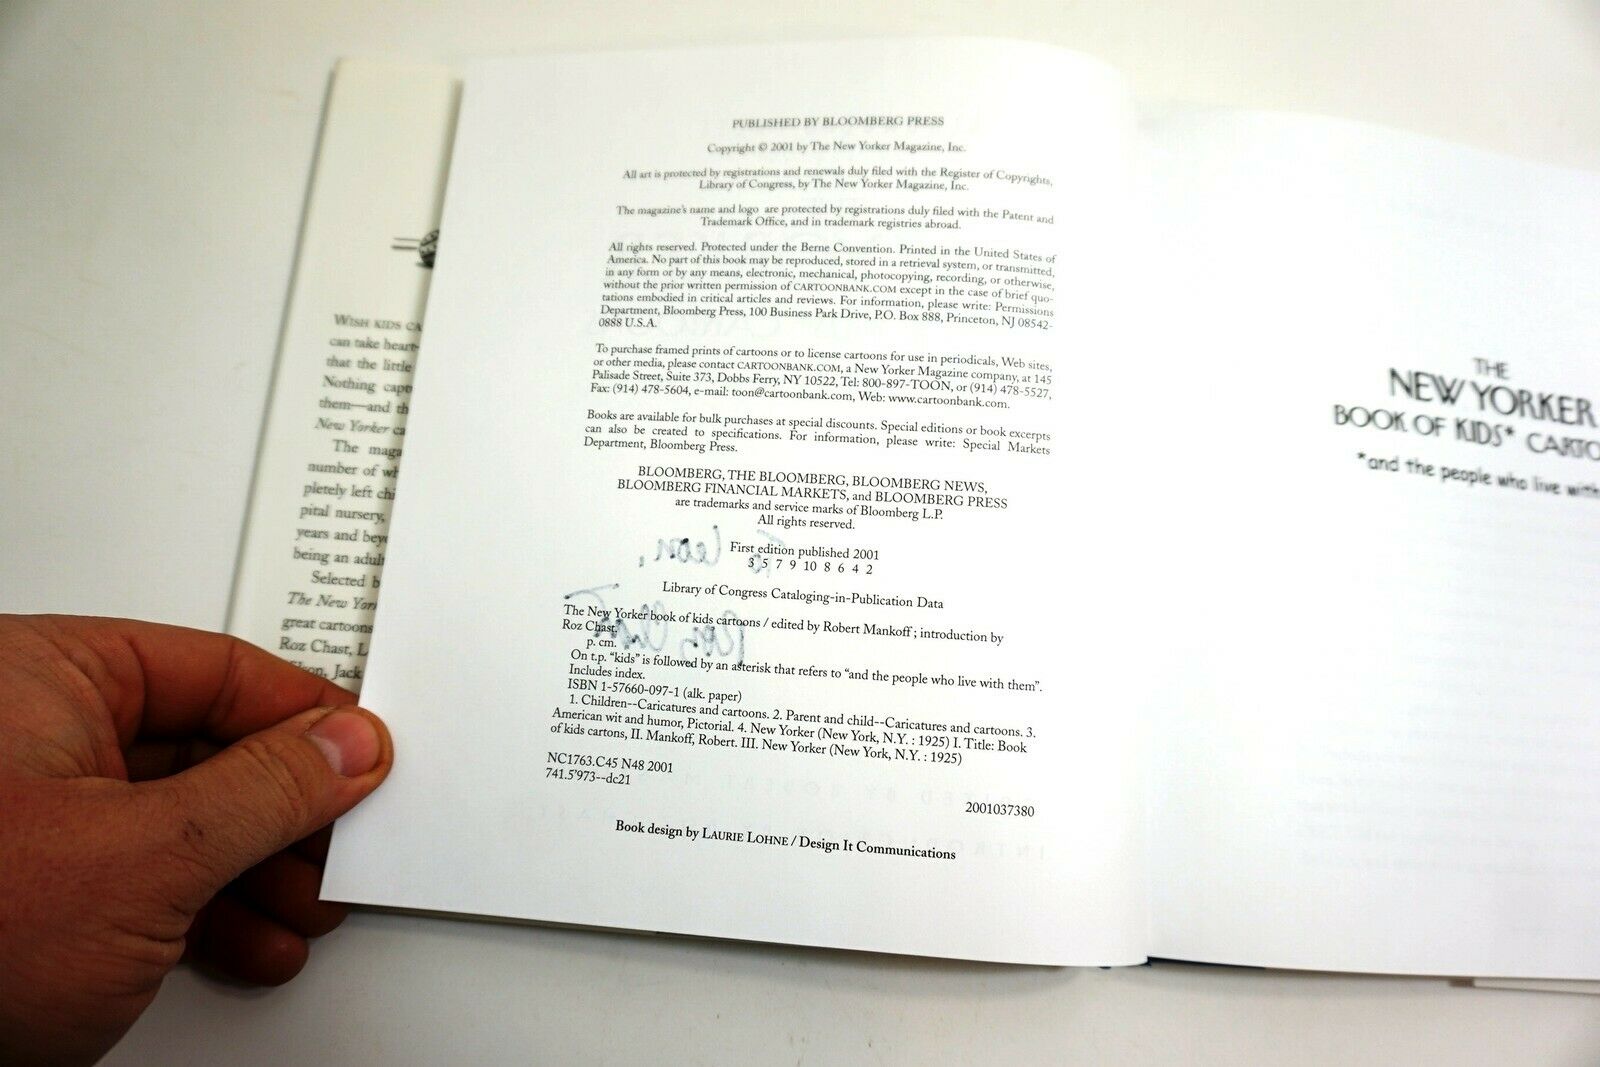 WISH KIDS CA
can take heart—
that the little
Nothing capt
them—and th
New Yorker ca
The maga
number of wh
pletely left chi
pital nursery,
years and beyo
being an adult
Selected b
The New York
great cartoons
Roz Chast, L
Jack
PUBLISHED BY BLOOMBERG PRESS
Copyright © 2001 by The New Yorker Magazine, Inc.
All art is protected by registrations and renewals duly filed with the Register of Copyrights,
Library of Congress, by The New Yorker Magazine, Inc.
The magazine's name and logo are protected by registrations duly filed with the Patent and
Trademark Office, and in trademark registries abroad.
All rights reserved. Protected under the Berne Convention. Printed in the United States of
America. No part of this book may be reproduced, stored in a retrieval system, or transmitted,
in any form or by any means, electronic, mechanical, photocopying, recording, or otherwise,
without the prior written permission of CARTOONBANK.COM except in the case of brief quo-
tations embodied in critical articles and reviews. For information, please write: Permissions
Department, Bloomberg Press, 100 Business Park Drive, P.O. Box 888, Princeton, NJ 08542-
0888 U.S.A.
To purchase framed prints of cartoons or to license cartoons for use in periodicals, Web sites,
or other media, please contact CARTOONBANK.COM, a New Yorker Magazine company, at 145
Palisade Street, Suite 373, Dobbs Ferry, NY 10522, Tel: 800-897-TOON, or (914) 478-5527,
Fax: (914) 478-5604, e-mail: toon@cartoonbank.com, Web: www.cartoonbank.com.
Books are available for bulk purchases at special discounts. Special editions or book excerpts
can also be created to specifications. For information, please write: Special Markets
Department, Bloomberg Press.
BLOOMBERG, THE BLOOMBERG, BLOOMBERG NEWS,
BLOOMBERG FINANCIAL MARKETS, and BLOOMBERG PRESS
are trademarks and service marks of Bloomberg L.P.
All rights reserved.
To Leon,
First edition published 2001
3 5 7 9 10 8 6 4 2
Library of Congress Cataloging-in-Publication Data
Roz Chast
The New Yorker book of kids cartoons / edited by Robert Mankoff ; introduction by
Roz Chast.
p. cm.
On t.p. "kids" is followed by an asterisk that refers to "and the people who live with them".
Includes index.
ISBN 1-57660-097-1 (alk. paper)
1. Children--Caricatures and cartoons. 2. Parent and child--Caricatures and cartoons. 3.
American wit and humor, Pictorial. 4. New Yorker (New York, N.Y. : 1925) I. Title: Book
of kids cartons, II. Mankoff, Robert. III. New Yorker (New York, N.Y. : 1925)
NC1763.C45 N48 2001
741.5'973--dc21
2001037380
Book design by LAURIE LOHNE / Design It Communications
THE
NEW YORKER
BOOK OF KIDS* CARTO
*and the people who live with